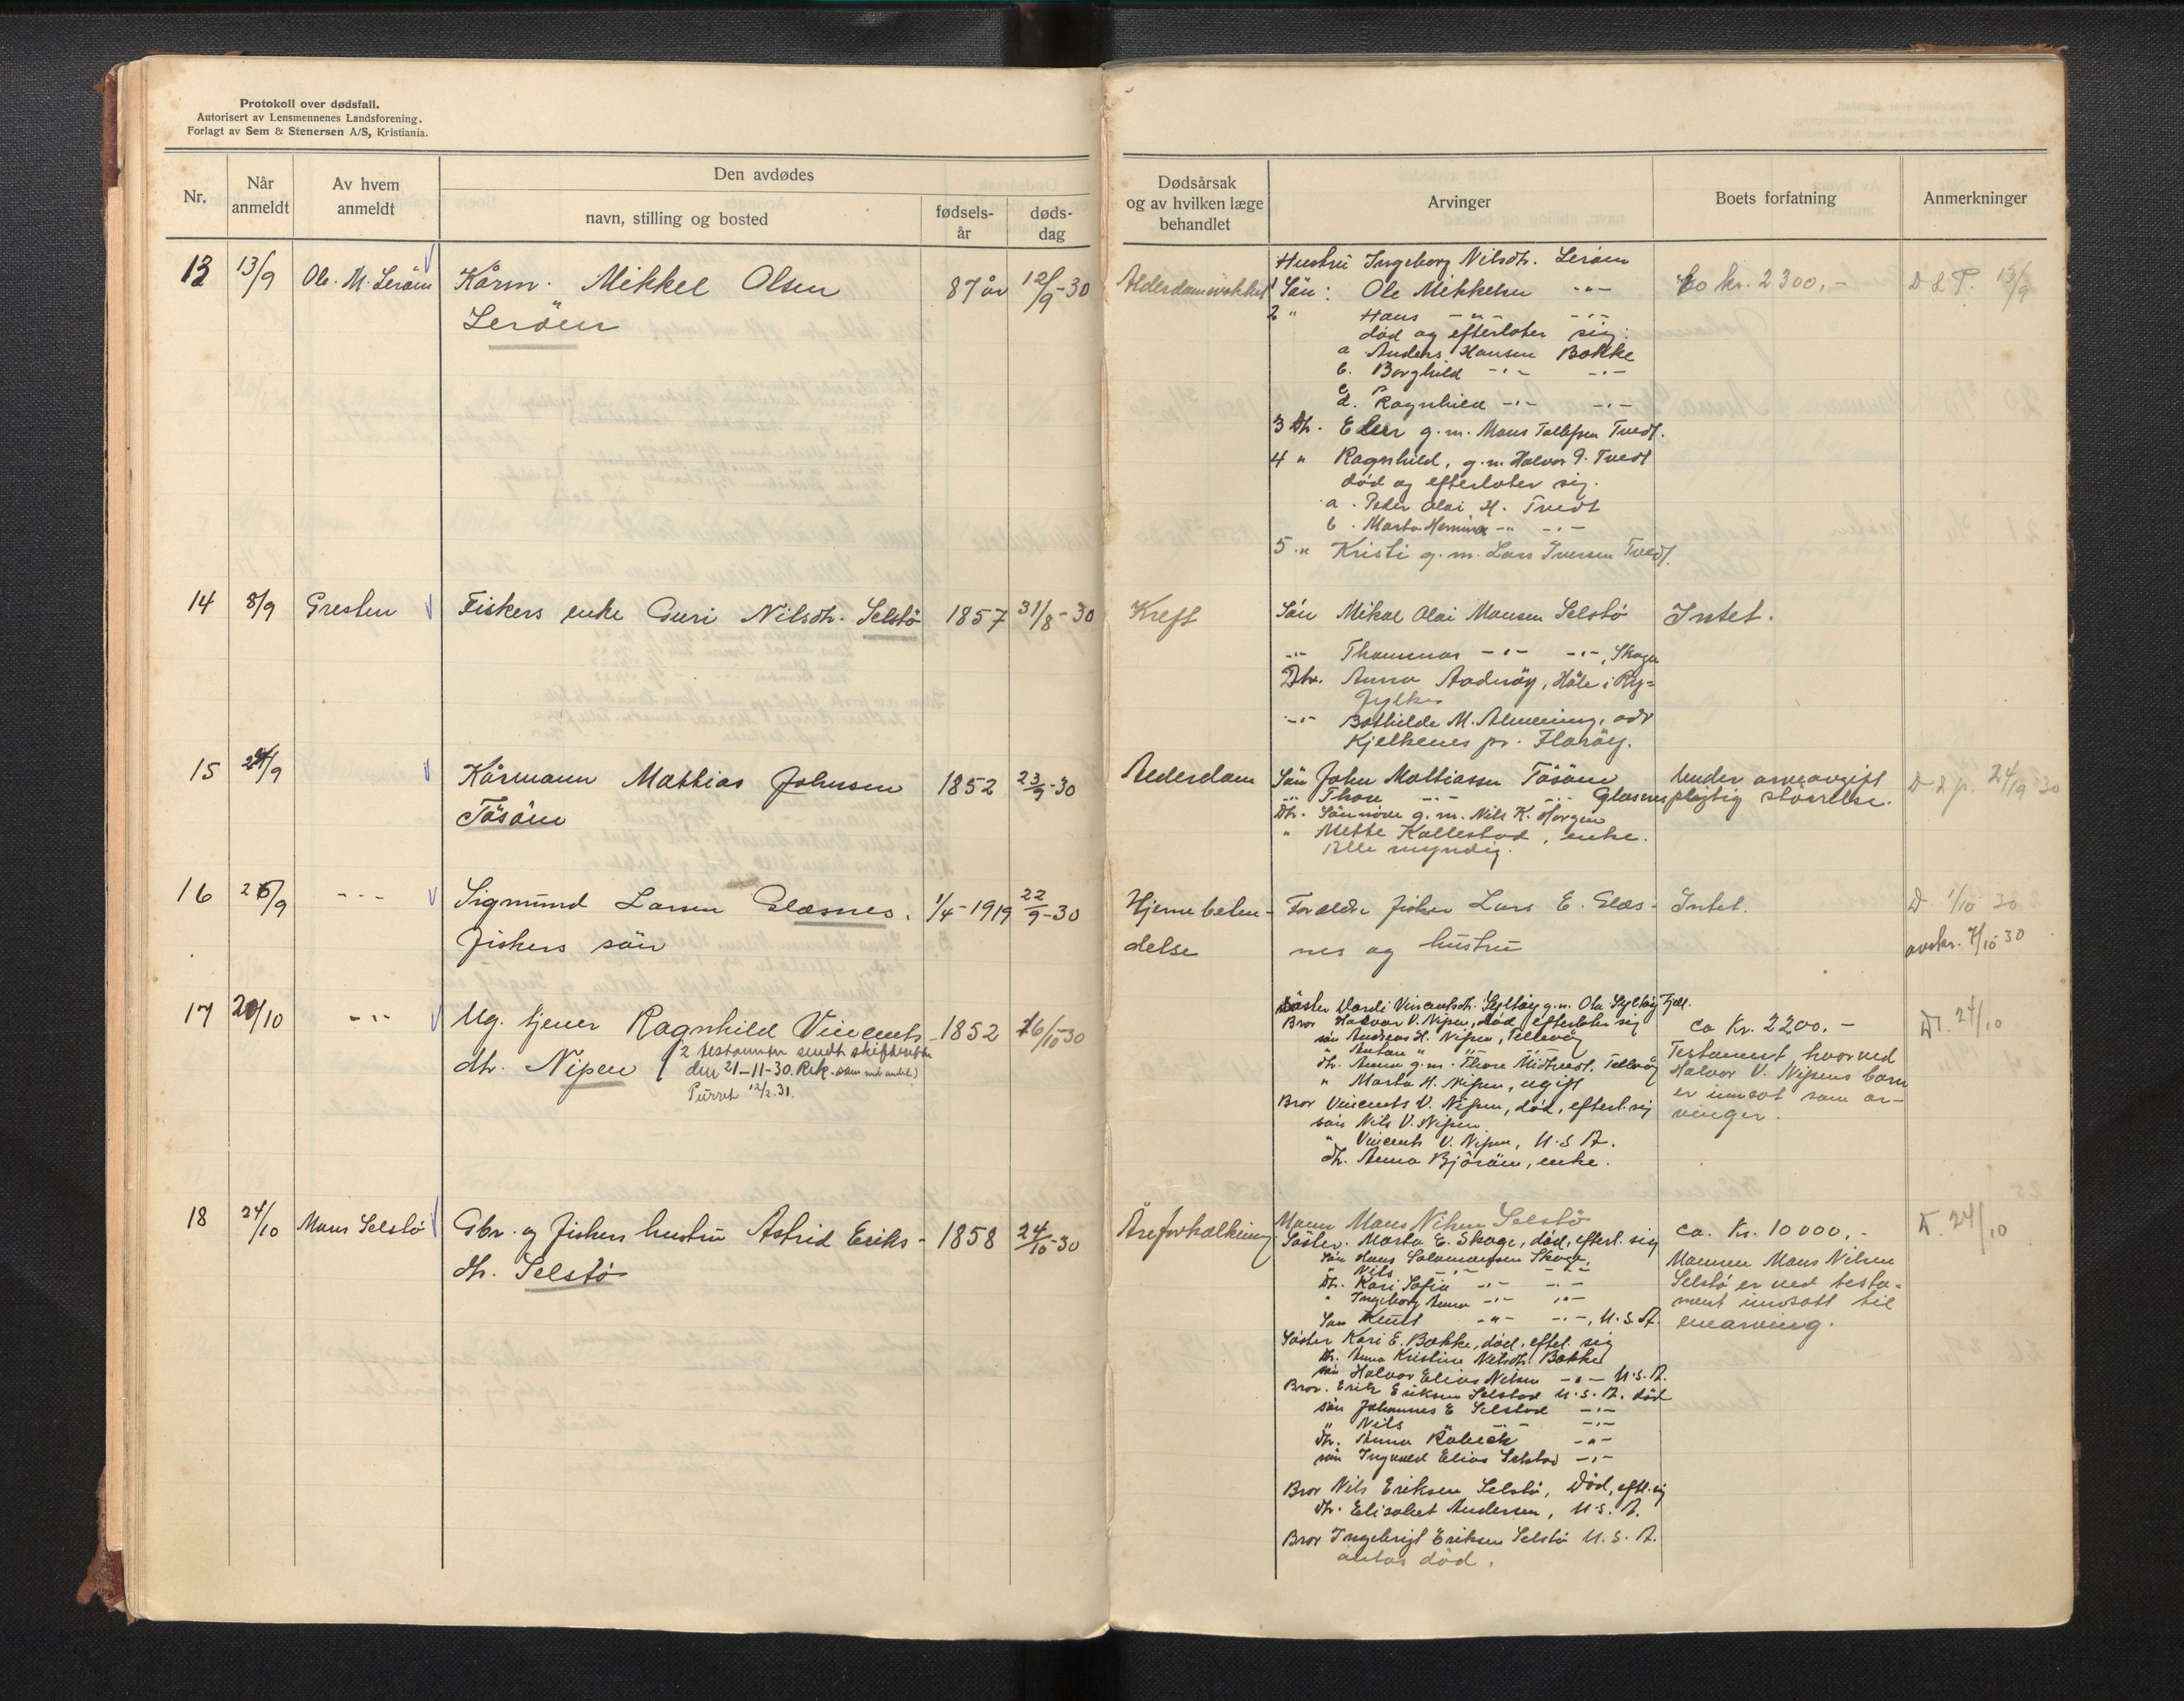 Protokoll over dødsfall.
Autorisert av Lensmennenes Landsforening.
Forlagt av Sem & Stenersen A/S, Kristiania.
Nr.
Når anmeldt
Av hvem anmeldt
Den avdødes
navn, stilling og bosted
fødsels-år
døds-dag
Dødsårsak og av hvilken læge behandlet
Arvinger
Boets forfatning
Anmerkninger
13 13/9 Ole M. Leröen Kårm. Mikkel Olsen 87 år 12/9-30
Leröen
Alderdomsvakkelse
Hustru Ingeborg Nilsdtr. Leröen
1 Sön: Ole Mikkelsen -"-
2 " Hans -"- -"-
död og efterlater sig:
a. Anders Hansen Bakke
b. Borghild -"- -"-
d. Ragnhild -"- -"-
3 Dtr. Elen g.m. Mons Tollefsen Tvedt.
4 " Ragnhild, g.m. Halvor P. Tvedt
död og efterlater sig.
a. Peder Olai H. Tvedt
b. Marta Hermine -"- -"-
5 " Kristi g.m. Lars Iversen Tvedt.
Ca kr. 2300,-
D & P. 13/9
14 8/9 Presten Fiskers enke Guri Nilsdtr. Selstö 1857 31/8-30
Kreft
Sön Mikal Olai Monsen Selstö
-"- Thommas -"- -"-, Skoge
Dtr. Anna Aaderöy, Höle i Ry-
fylke
-"- Bothilde M. Almening, adr
Kjelkenes pr. Floröy.
Intet.
15 24/9 Kårmann Mathias Johnsen 1852 23/9-30
Tösöen
Alderdom
Sön John Mathiassen Tösöen
-"- Thore -"- -"- Glesnes
Dtr. Sönnöve g.m. Nils K. Horgen
" Mette Kallestad, enke.
Alle myndig.
Under arveavgift
pligtig störrelse.
D & p. 24/9 30
16 26/9 -"- Sigmund Larsen Glesnes. 1/4-1919 22/9-30
fiskers sön
Hjernebeten-
delse
Foreldre fisker Lars E. Gles-
nes og hustru
Intet.
D. 1/10 30
avskr. 7/10 30
17 20/10 -"- Ug. tjener Ragnhild Vincents- 1852 16/10-30
dtr. Nipen
2 testamenter sendt skifteretten
den 21-11-30. Rek.
Purret 12/2.31.
Söster Dordi Vincentsdtr. Syltöy g.m. Ola Syltöy Fjell.
Bror Halvor V. Nipen, död, efterlater sig
sön Andreas H. Nipen, Tellevåg
" Anton " " "
dtr. Anna g.m. Thore Midttveit, Tellvåg
" Marta H. Nipen, ugift
Bror Vincents V. Nipen, död, efterl. sig
sön Nils V. Nipen
" Vincents V. Nipen, U.S.A.
dtr. Anna Björöen, enke.
ca Kr. 2200.-
Testament, hvorved
Halvor V. Nipens barn
er innsat som ar-
vinger.
D. 24/10
18 24/10 Mons Selstö Gbr. og fiskers hustru Astrid Eriks- 1858 24/10-30
dtr. Selstö
Åreforkalkning
Mann Mons Nilsen Selstö
Söster. Marta E. Skoge, död, efterl. sig
Sön Hans Salamonsen Skoge,
" Nils -"- -"-
Dtr. Kari Sofia -"- -"-
" Ingeborg Anna -"- -"-
Sön Knut -"- -"-, U.S.A.
Söster Kari E. Bakke, död, efterl. sig
Dtr. Anna Kristine Nilsdtr. Bakke
sön Halvor Elias Nilsen -"- U.S.A.
Bror. Erik Eriksen Selstad U.S.A. död
sön Johannes E Selstad -"-
" Nils -"- -"-
Dtr. Anna Robeck -"-
sön Ingvald Elias Selstad -"-
Bror Nils Eriksen Selstö, Död, eftl. sig
dtr. Elisabet Andersen, U.S.A.
Bror Ingebrigt Eriksen Selstö U.S.A.
antas död.
ca. Kr. 10000,-
Mannen Mons Nilsen
Selstö er ved testa-
ment innsatt til
enearving.
D. 24/10